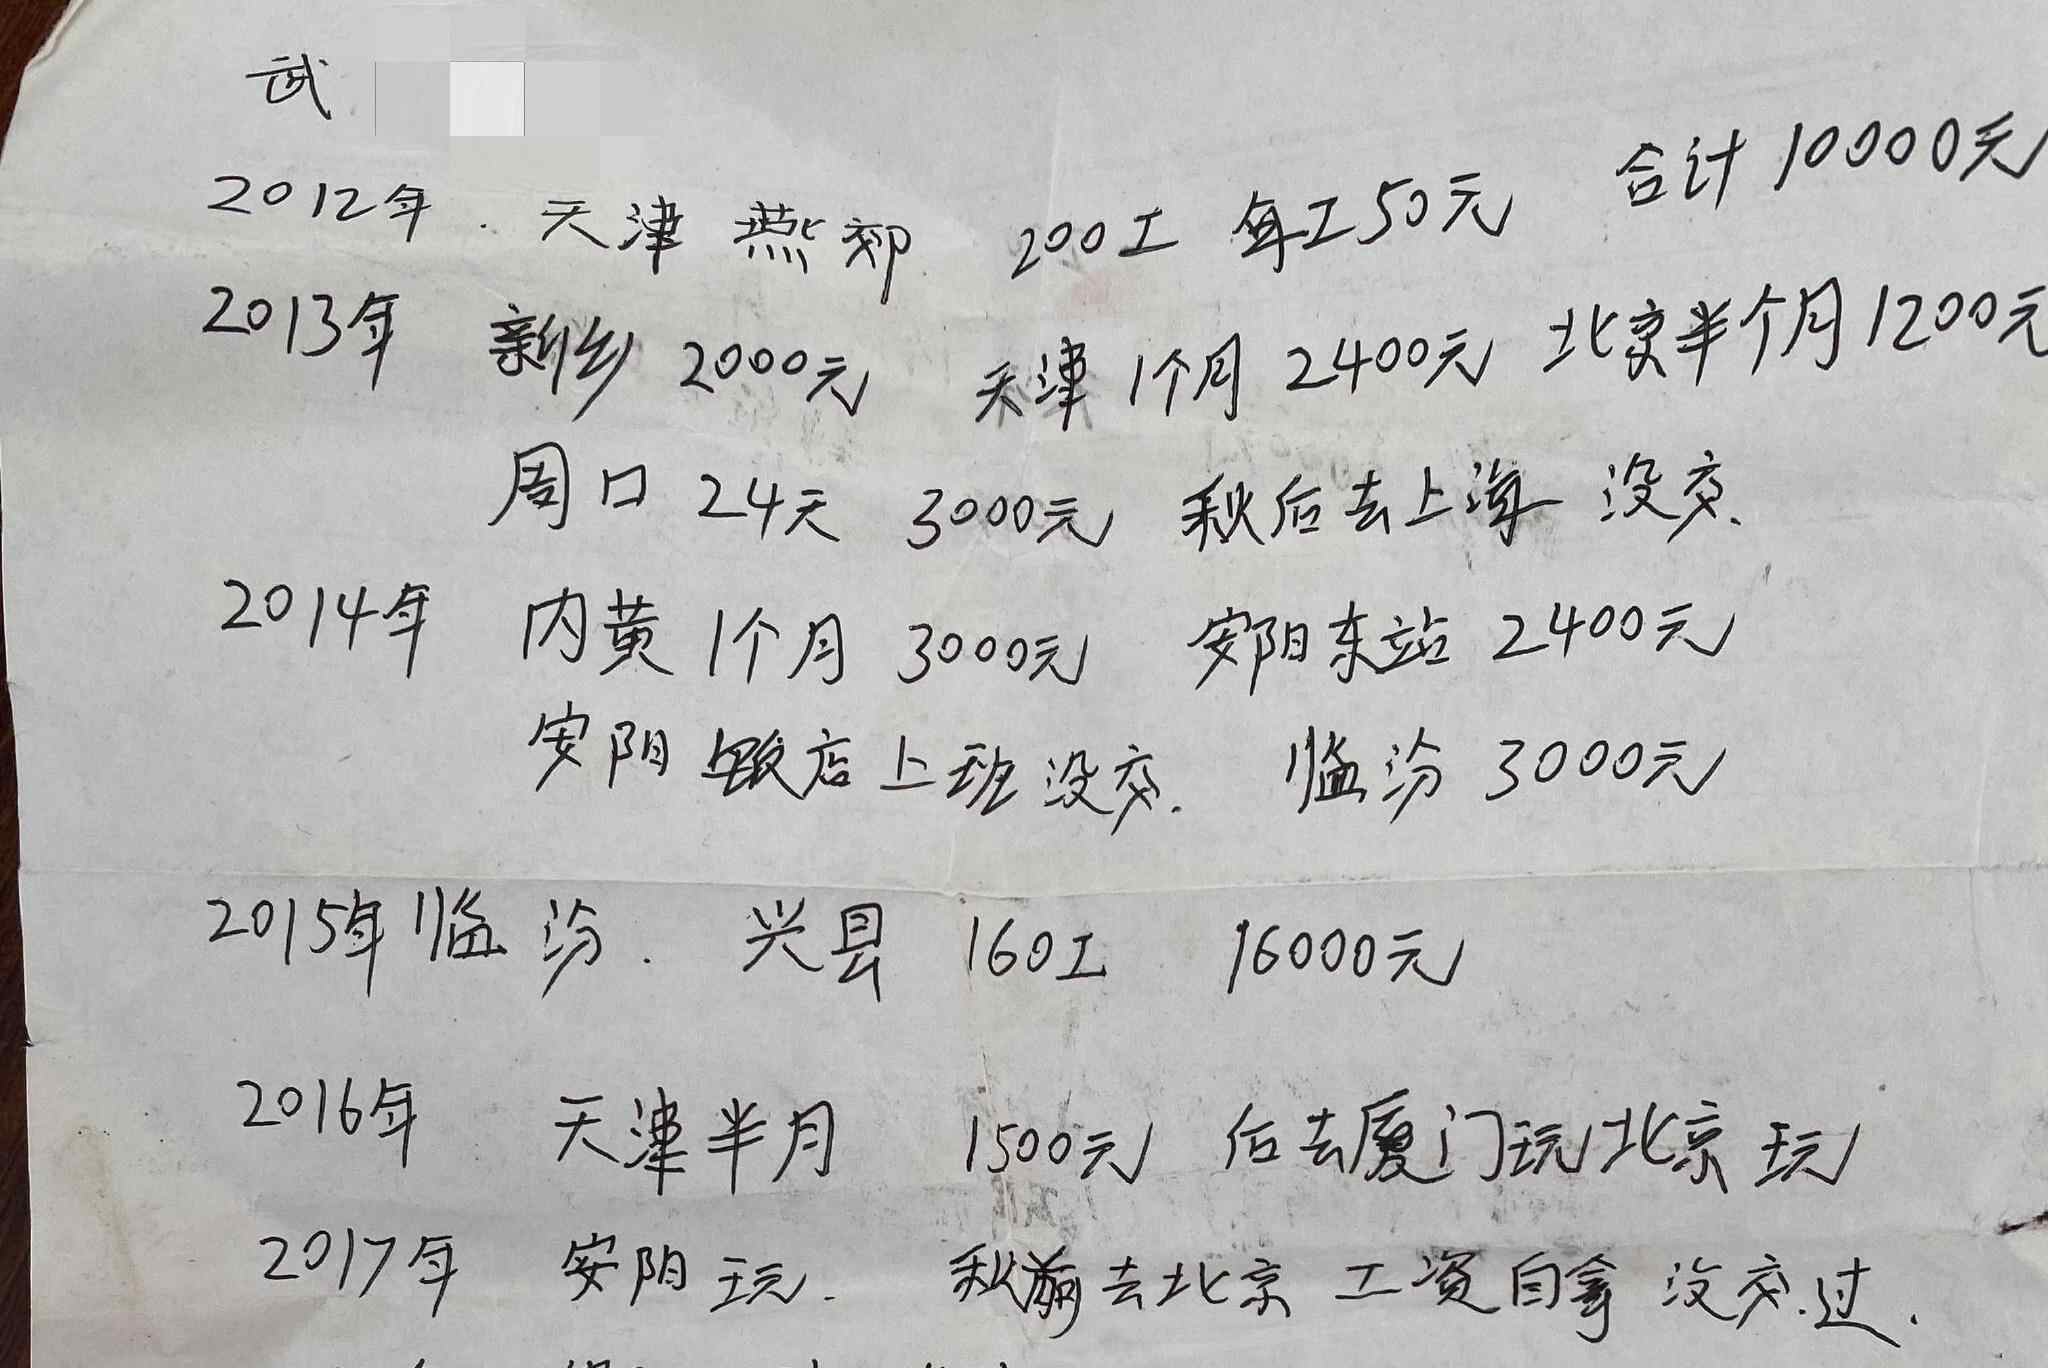 武
2012年. 天津 燕郊 200工 每工50元 合计10000元
2013年 新乡 2000元 天津1个月2400元 北京半个月1200元
周口 24天 3000元 秋后去上海 没交.
2014年 内黄1个月 3000元 安阳东站 2400元
安阳 店上班没交. 临汾 3000元
2015年临汾. 兴县 160工 16000元
2016年 天津半月 1500元 后去厦门玩北京玩
2017年 安阳玩. 秋前去北京 工资自拿 没交过.